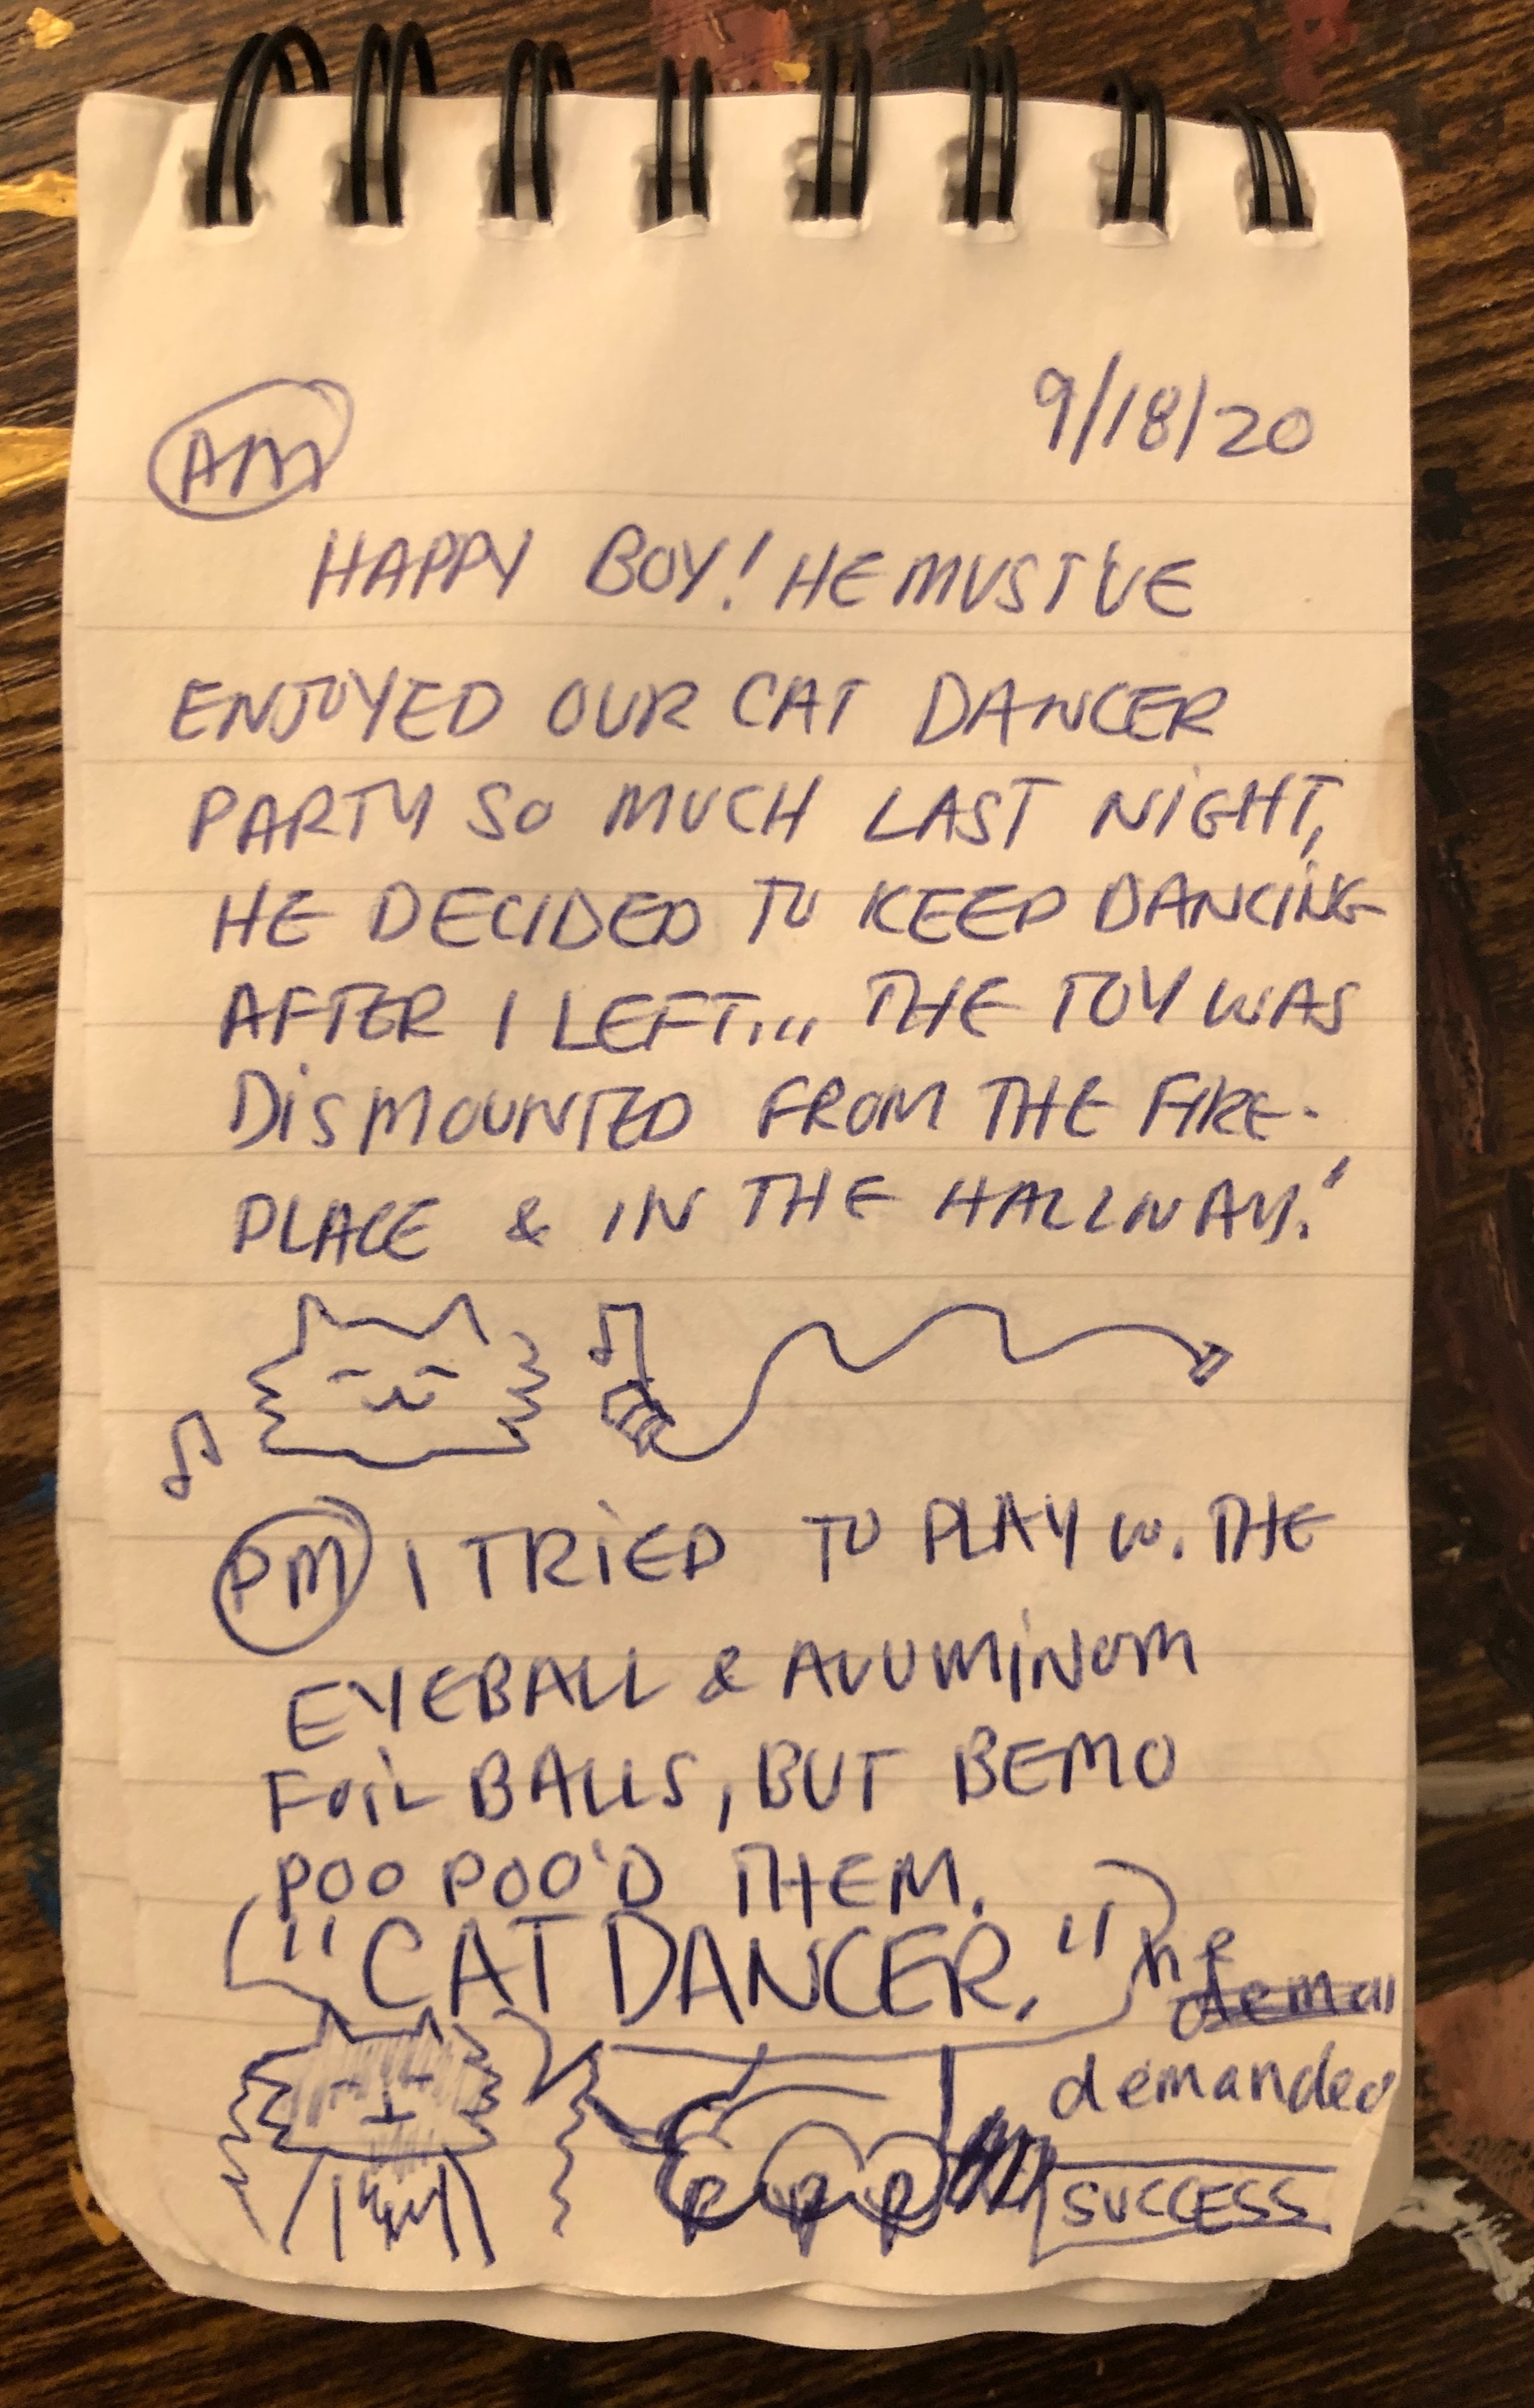 AM
9/18/20
HAPPY BOY! HE MUST'VE
ENJOYED OUR CAT DANCER
PARTY SO MUCH LAST NIGHT,
HE DECIDED TO KEEP DANCING
AFTER I LEFT... THE TOY WAS
DISMOUNTED FROM THE FIRE-
PLACE & IN THE HALLWAY!
PM I TRIED TO PLAY W. THE
EYEBALL & ALUMINUM
FOIL BALLS, BUT BEMO
POO POO'D THEM.
"CAT DANCER." he
demanded
SUCCESS